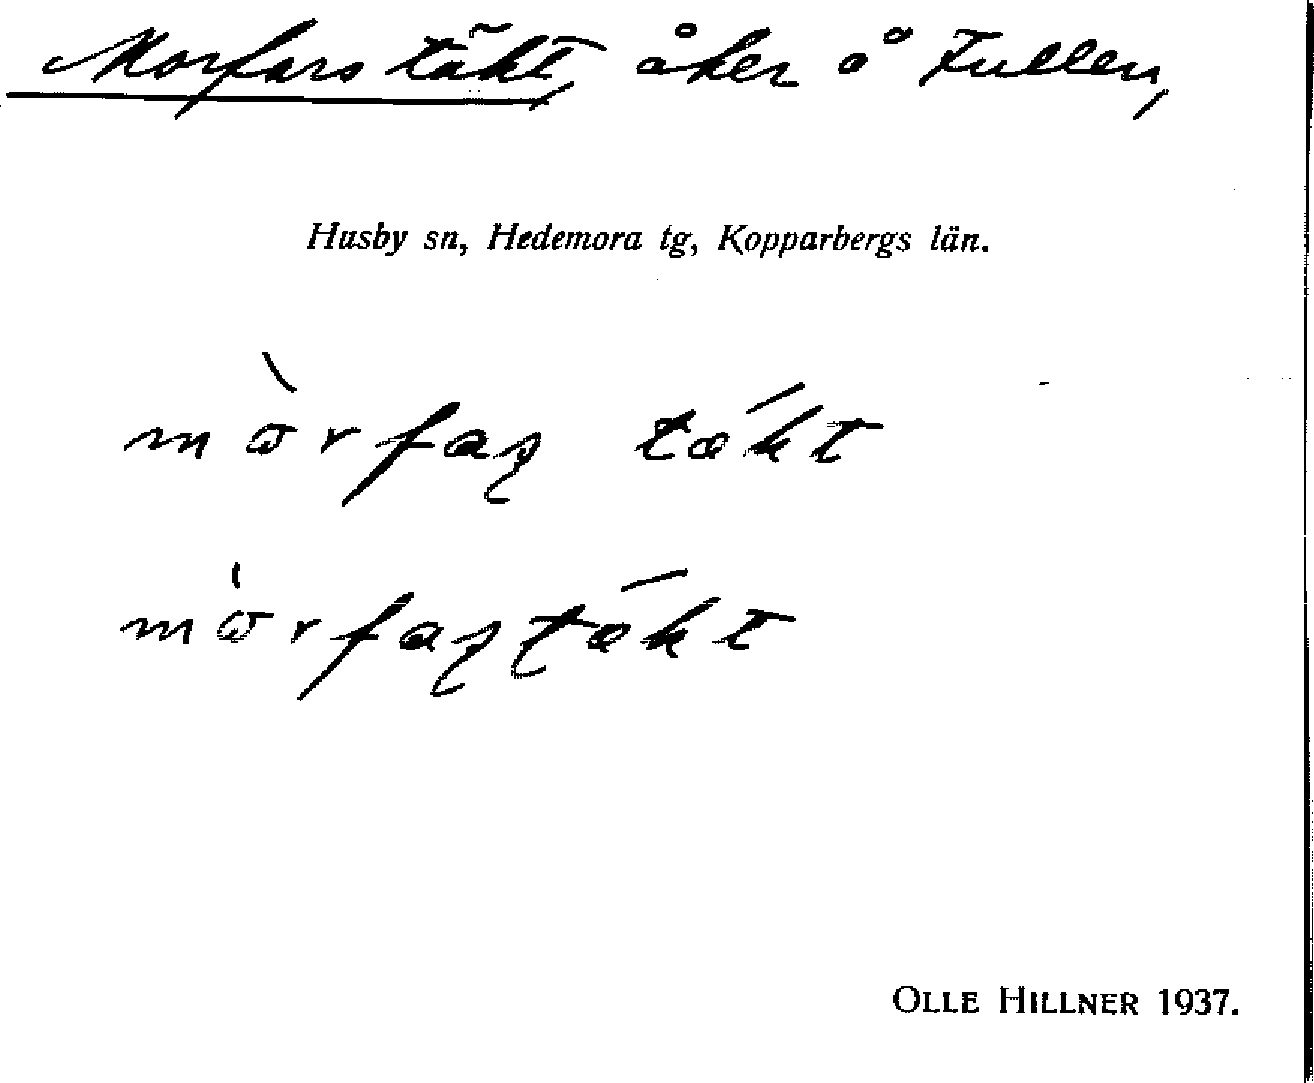 Morfars täkt, åker å Fullen,
Husby sn, Hedemora tg, Kopparbergs län.
mɷ̀rfaʂ tǽkt
mɷ̀rfaʂʈǽkt
OLLE HILLNER 1937.